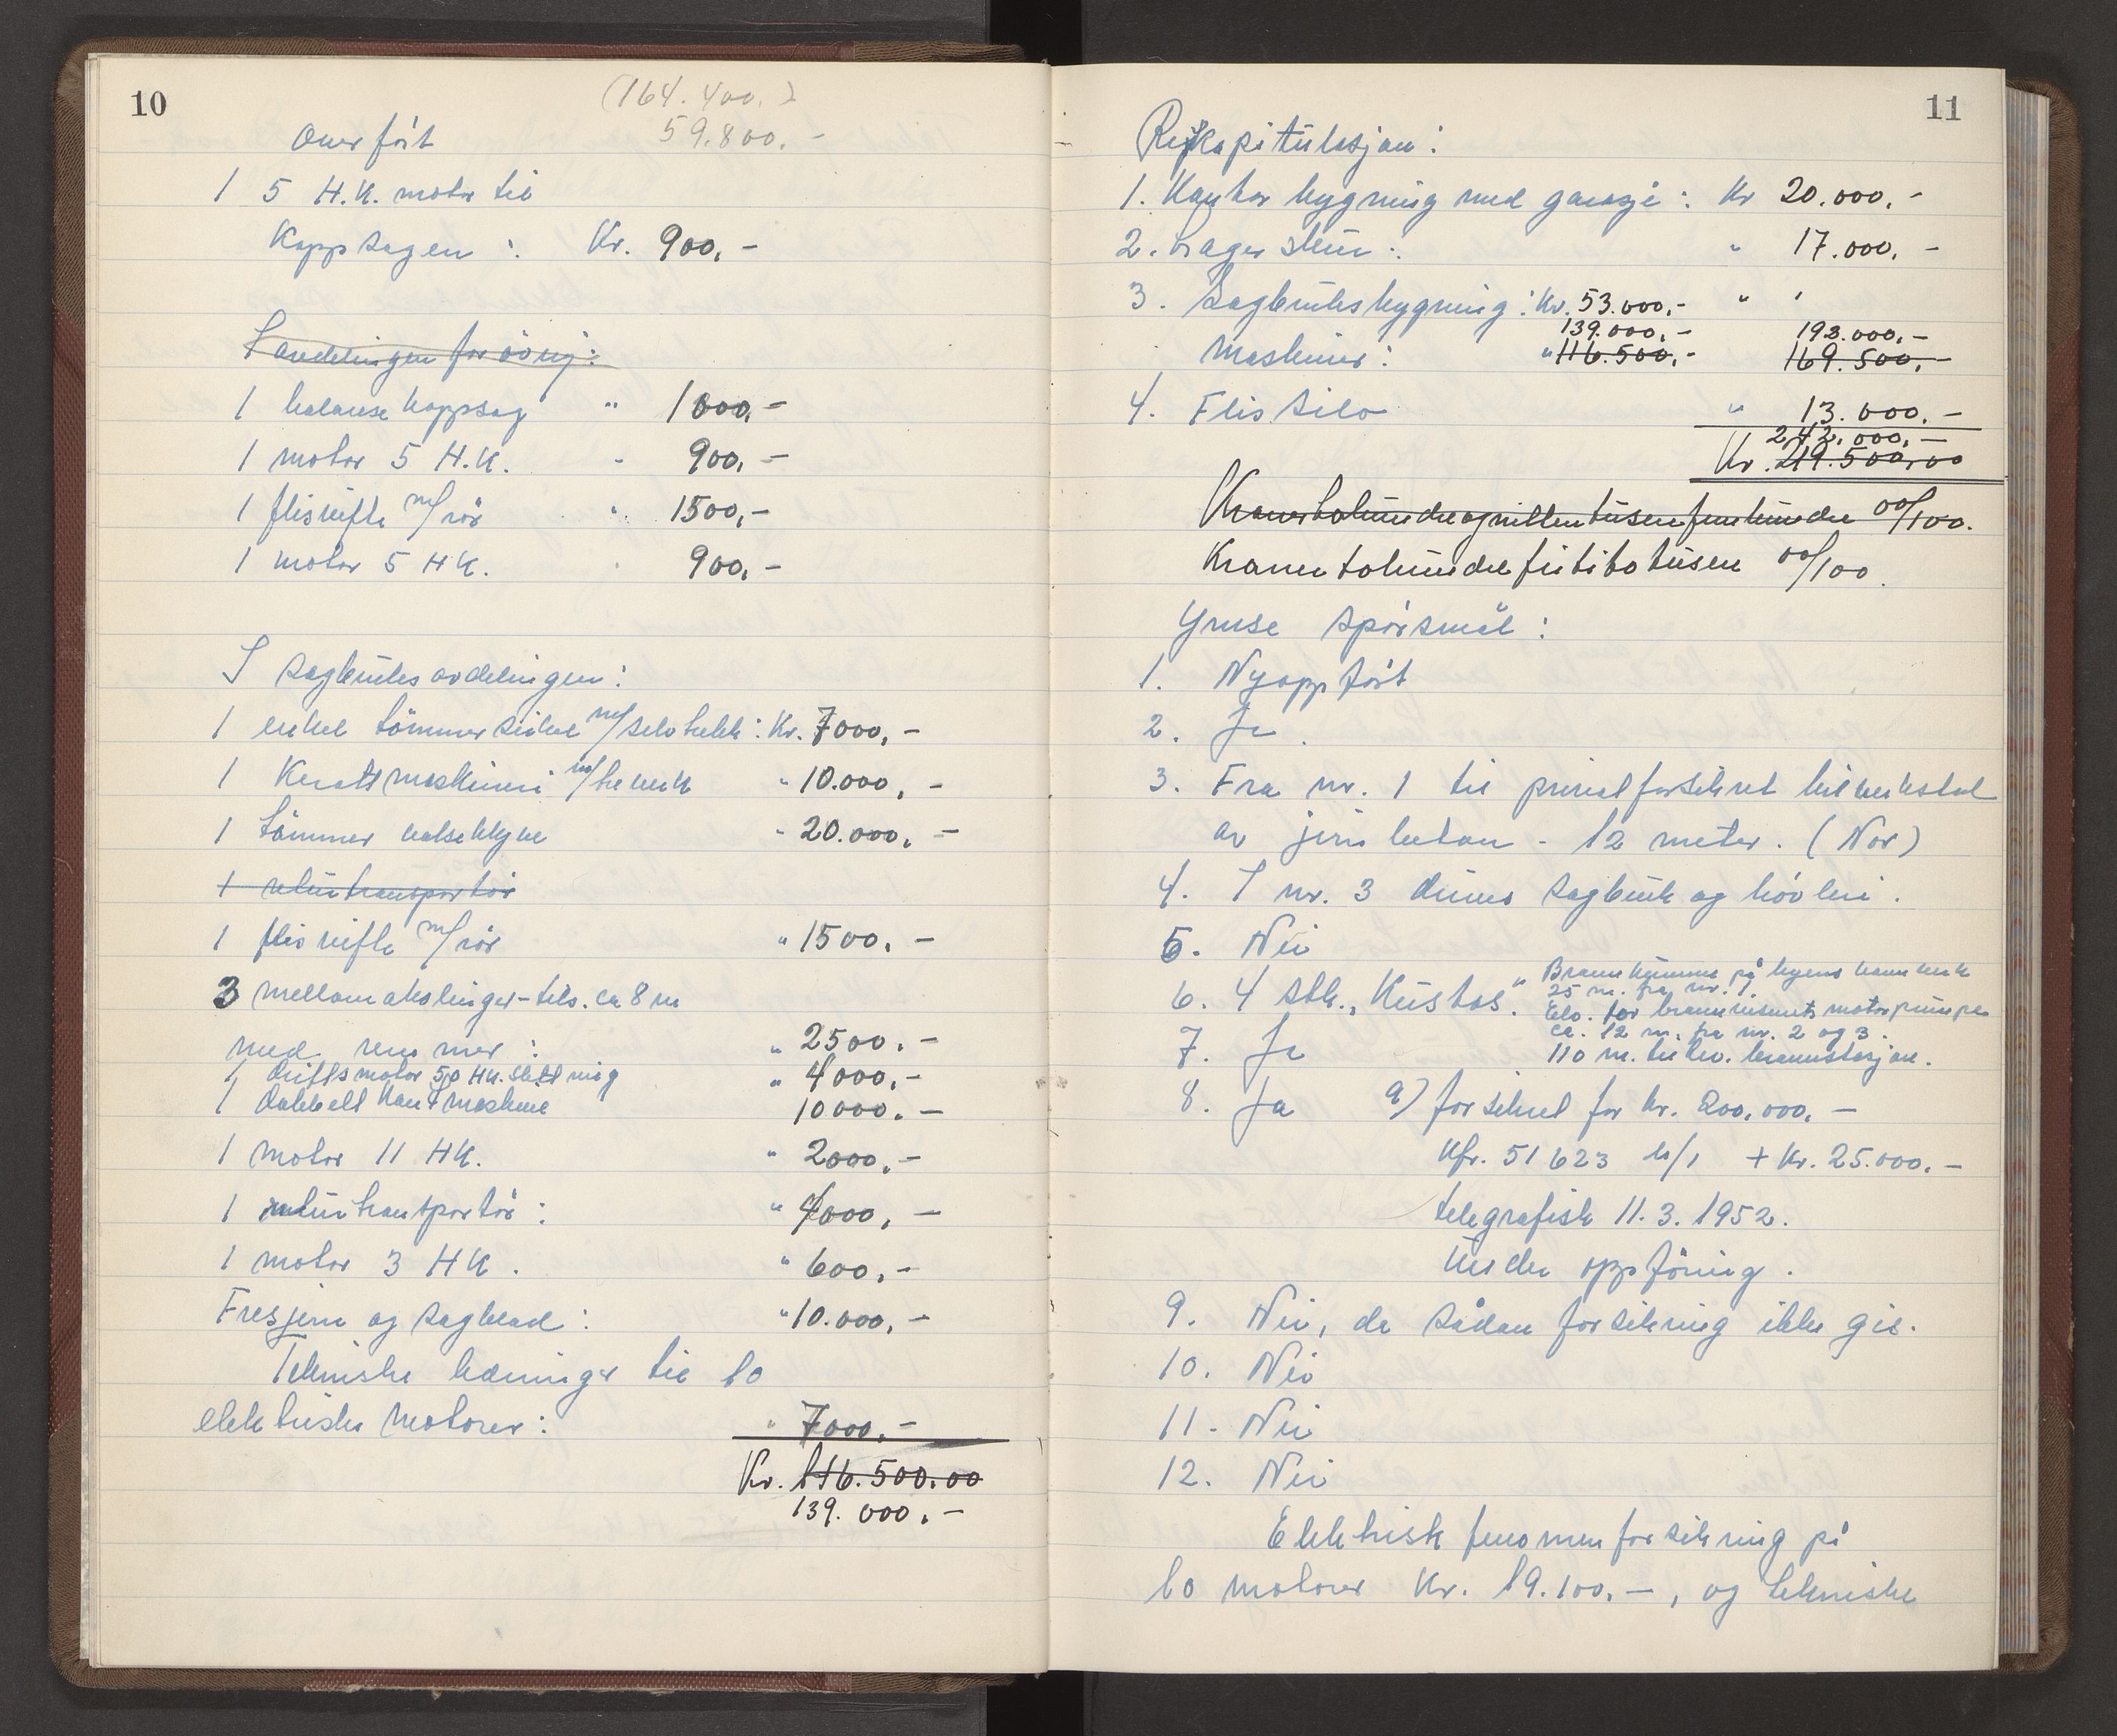 10
(164.400.)
Overført 59.800.-
1 5 H.K. motor til
Kappsagen : Kr. 900,-
I avdelingen for övrig:
1 balanse kappsag " 1000,-
1 motor 5 H.K. " 900,-
1 flisvifte m/rör " 1500,-
1 motor 5 HK. " 900,-
I sagbruksavdelingen:
1 enkel tömmersirkel m/selvtrekk : Kr. 7000,-
1 Kerattmaskineri m/trekk " 10.000,-
1 tömmer " 20.000,-
1 returtransportör
1 flisvifte m/rör " 1500.-
3 mellomakslinger - tils. ca 8 m
med remmer : " 2500.-
1 driftsmotor 50 HK. " 4000,-
1 dobbelt kantmaskine 10000.-
1 motor 11 HK. " 2000,-
1 returtransportör : " 4000,-
1 motor 3 HK. " 600,-
Fresjern og sagblad : " 10.000,-
Tekniske ledninger til 10
elektriske motorer : " 7000.-
Kr. 116.500.00
139.000.-
11
Rekapitulasjon :
1. Kontorbygning med garasje : Kr 20.000,-
2. Lagerskur : " 17.000,-
3. Sagbruksbygning : Kr. 53.000,- "
139.000,- 192.000,-
Maskiner : " 116.500,- 169.500,-
4. Flissilo " 13.000.-
242.000,-
Kr. 219.500,00
Kroner tohundreognittentusenfemhundre 00/100.
Kroner tohundreførtitotusen 00/100.
Ymse spörsmål :
1. Nyoppført
2. Ja.
3. Fra nr. 1 til privatforsikret
av jernbeton - 12 meter. (Nor)
4. I nr. 3 drives sagbruk og høvleri.
5. Nei
6. 4 stk. "Kustos". Brannkumme på byens
25 m. fra nr. 1.
Elv. for brannvesenets motorpumpe
ca. 12 m. fra nr. 2 og 3.
7. Ja 110 m. til hov. brannstasjon.
8. Ja a) forsikret for kr. 200.000,-
Kfr. 51623 + Kr. 25.000.-
telegrafisk 11.3.1952.
Under oppföring.
9. Nei, da sådan forsikring ikke
10. Nei
11. Nei
12. Nei
Elektrisk fenomenforsikring på
10 motorer Kr. 19.100.-, og tekniske